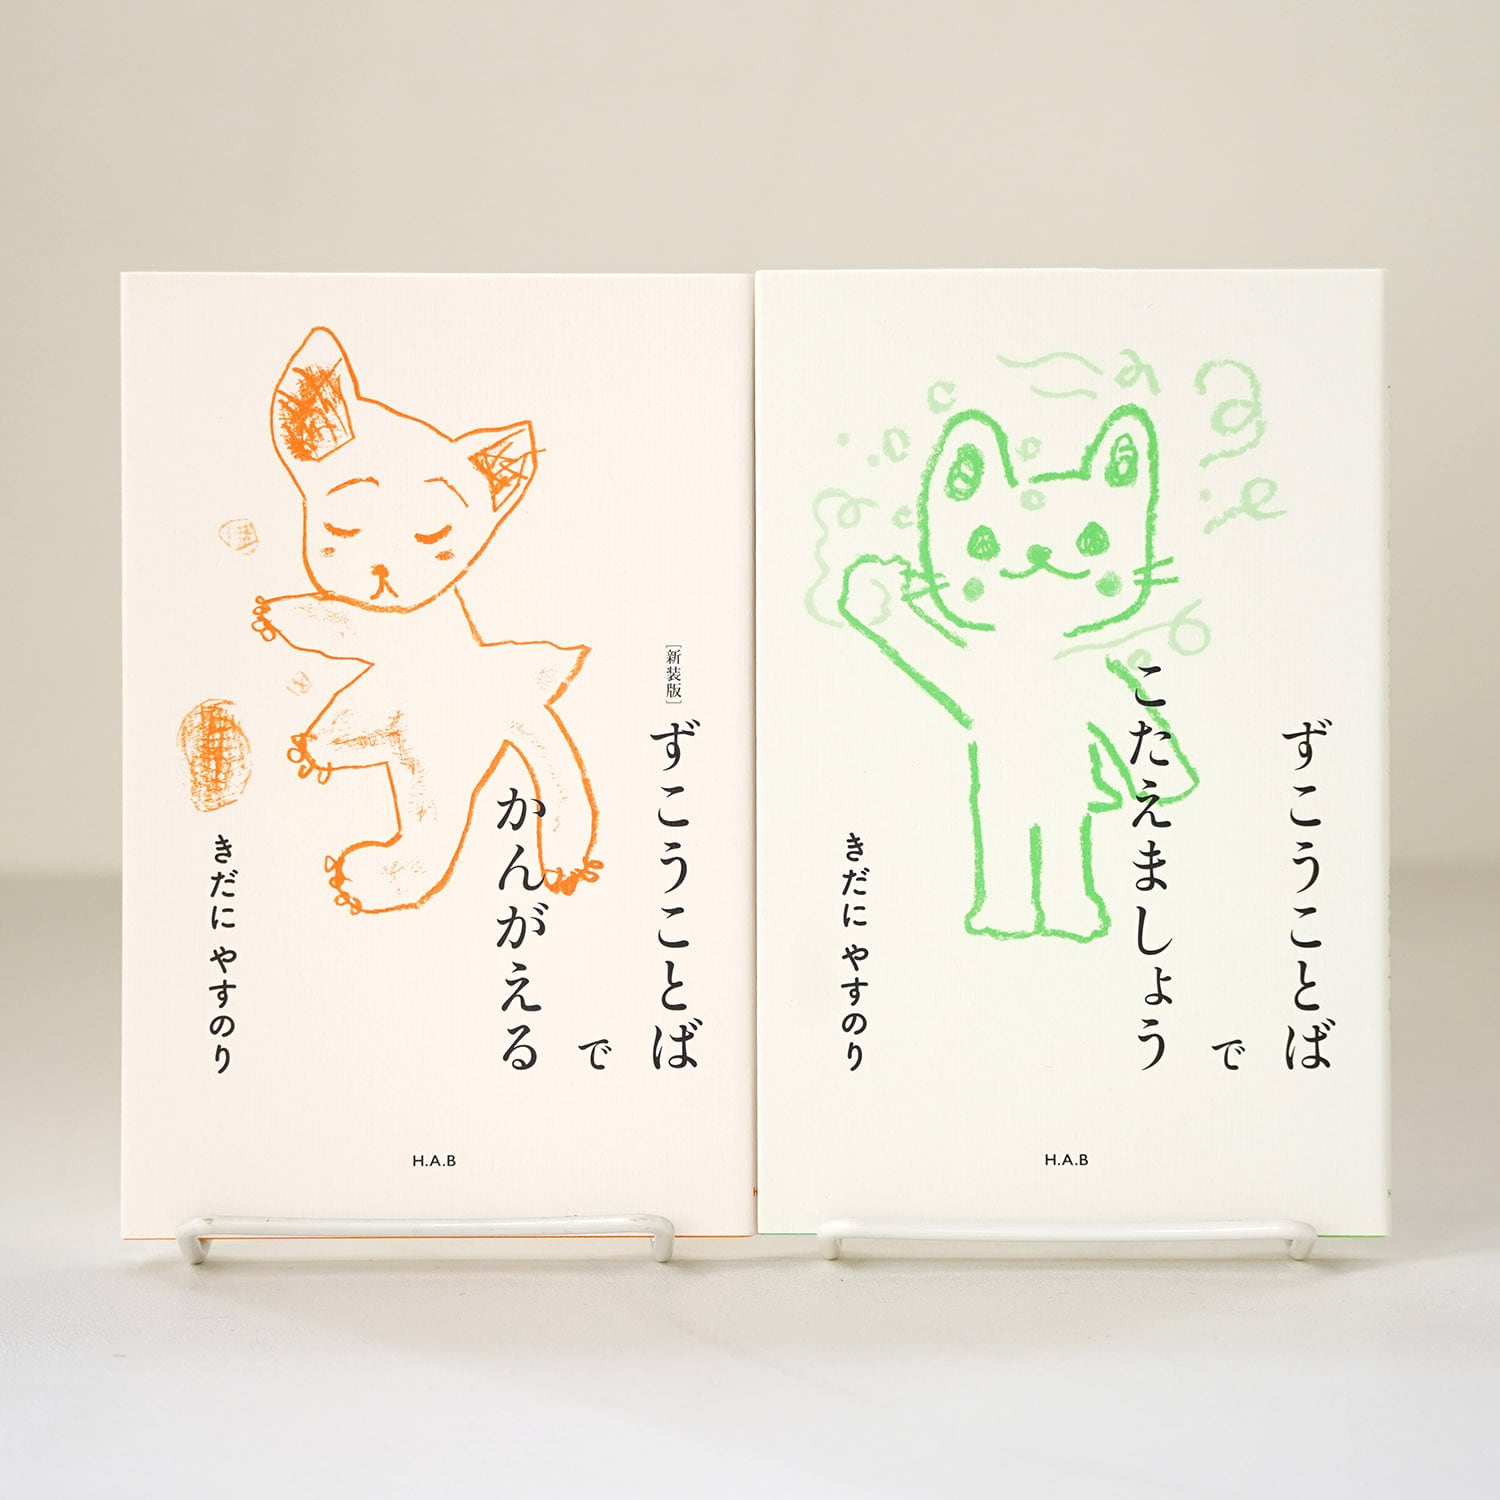 [新装版]
ずこうことば
で
かんがえる
きだに やすのり
H.A.B
ずこうことば
で
こたえましょう
きだに やすのり
H.A.B